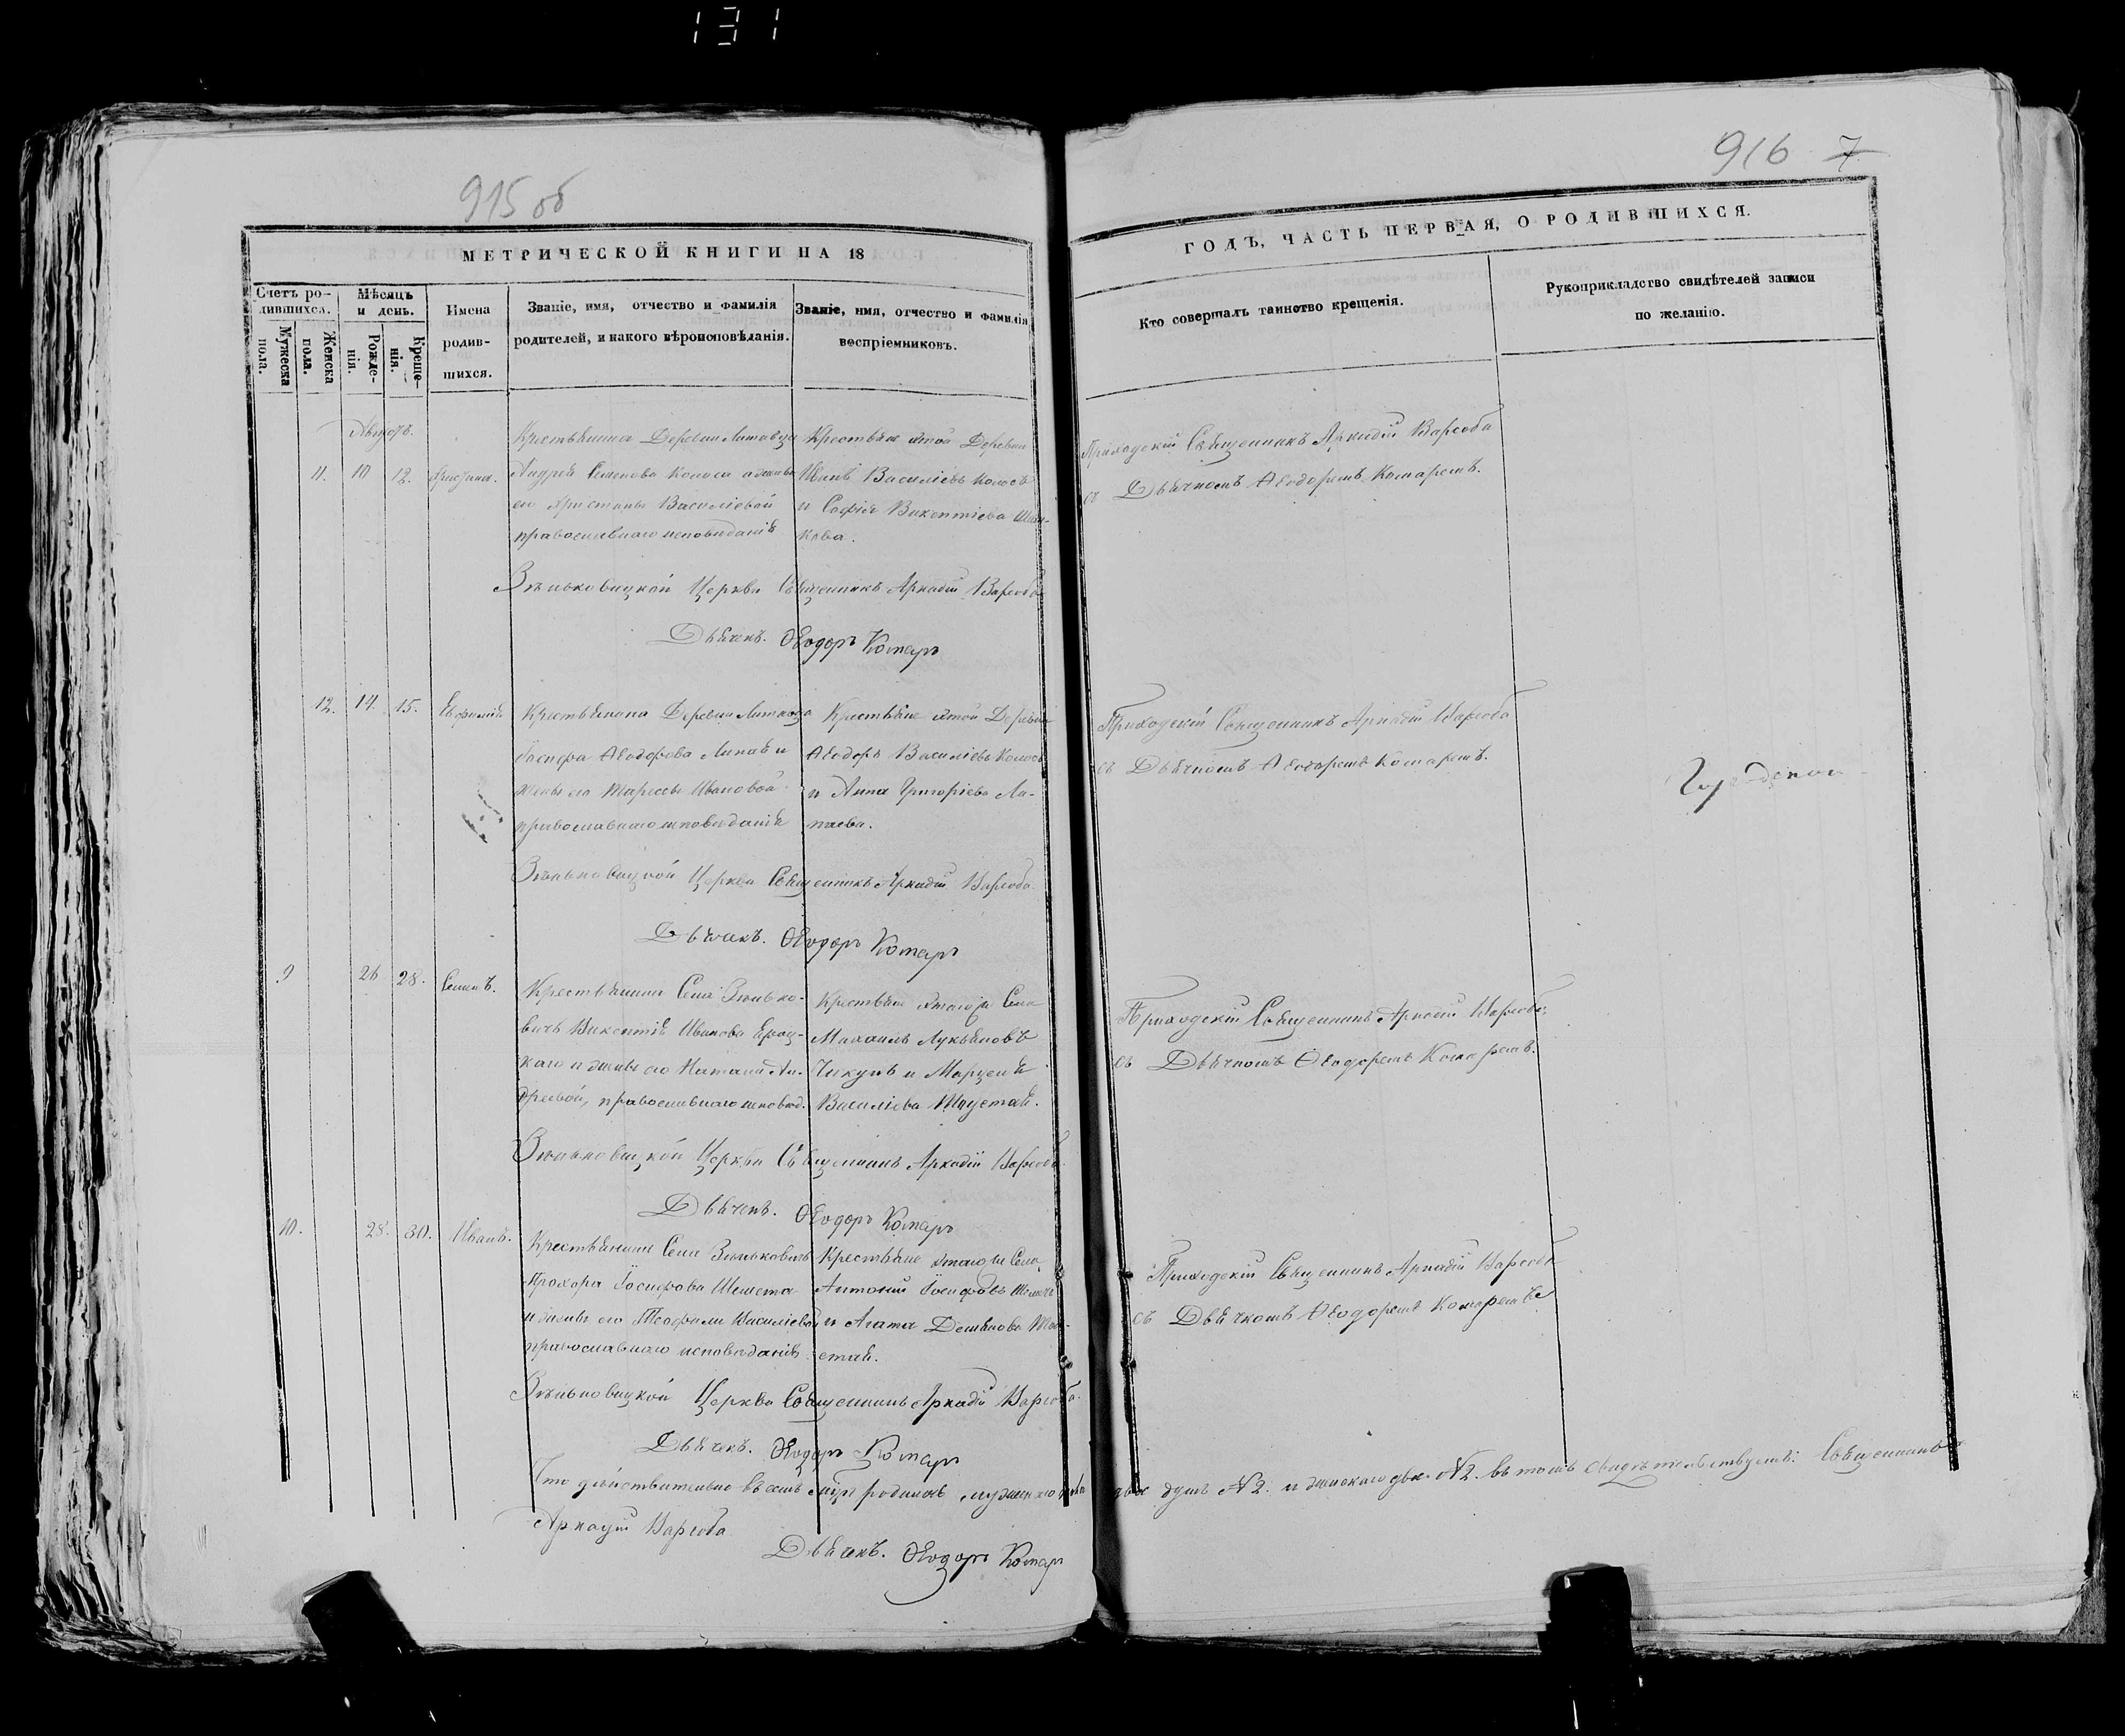 131
915 об
916 7
МЕТРИЧЕСКОЙ КНИГИ НА 18
ГОДЪ, ЧАСТЬ ПЕРВАЯ, О РОДИВШИХСЯ.
Счетъ ро-
дившихся.
Мужеска
пола.
Женска
пола.
Мѣсяцъ
и день.
Рожде-
нія.
Креще-
нія.
Имена
родив-
шихся.
Званіе, имя, отчество и фамилія
родителей, и какого вѣроисповѣданія.
Званіе, имя, отчество и фамилія
воспріемниковъ.
Кто совершалъ таинство крещенія.
Рукоприкладство свидѣтелей записи
по желанію.
Августъ.
11. 10 12.
Крестьянина Деревни
Андрея Семенова Колоса а жены
его Христины Василіевой
православнаго исповѣданія
Крестьяне Деревни
Иванъ Василіевъ Колосъ
и Софія Викентіева
кова.
Приходскій Священникъ Аркадій Варсоба
съ Дьячкомъ Ѳеодоромъ Комаремъ.
Церкви Священникъ Аркадій Варсоба
Дьячекъ. Ѳеодоръ Комаръ
12. 14. 15. Евфимія
Крестьянина Деревни
Іосифа Ѳеодорова и
жены его Ивановой
православнаго исповѣданія
Крестьяне Деревни
Ѳеодоръ Василіевъ Колосъ
и Анна Григоріева Ли-
паева.
Приходскій Священникъ Аркадій Варсоба
съ Дьячкомъ Ѳеодоромъ Комаремъ.
Церкви Священникъ Аркадій Варсоба
Дьячекъ. Ѳеодоръ Комаръ
9 26 28. Семенъ.
Крестьянина Села Зѣнько-
вичъ Викентія Иванова
каго и жены его Наталіи Ан-
дреевой, православнаго исповѣд.
Крестьяне Села
Михаилъ Лукьяновъ
Чикунъ и
Василіева Шустай.
Приходскій Священникъ Аркадій Варсоба
съ Дьячкомъ Ѳеодоромъ Комаремъ.
Церкви Священникъ Аркадій Варсоба
Дьячекъ. Ѳеодоръ Комаръ
10. 28. 30. Иванъ.
Крестьянина Села Зѣньковичъ
Прохора Іосифова
и жены его Теофили Василіевой
православнаго исповѣданія
Крестьяне Села
Антоній Іосифовъ
и Агата Демьянова
стай.
Приходскій Священникъ Аркадій Варсоба
съ Дьячкомъ Ѳеодоромъ Комаремъ
Церкви Священникъ Аркадій Варсоба.
Дьячекъ. Ѳеодоръ Комаръ
Что дѣйствительно въ семъ мужескаго пола двѣ душъ №2. и женскаго двѣ №2. въ томъ свидѣтельствуемъ: Священникъ
Аркадій Варсоба
Дьячекъ. Ѳеодоръ Комаръ